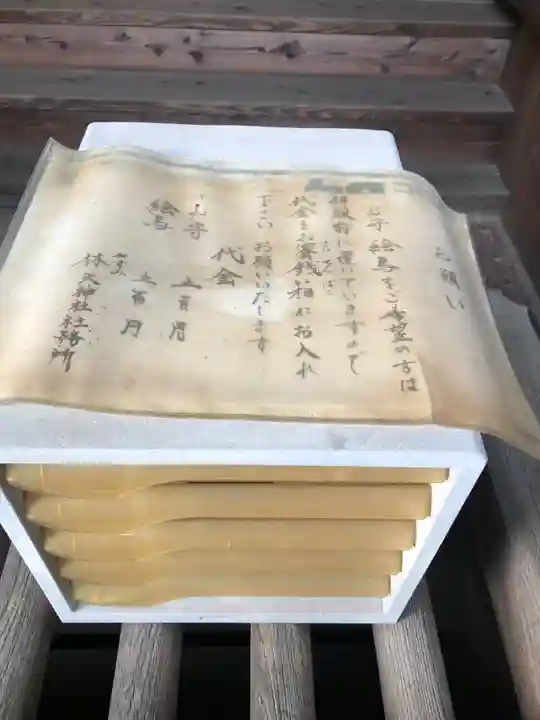 お願い
お守 絵馬をご希望の方は
拝殿前に置いていますので
代金をお賽銭箱にお入れ
下さい お願いいたします
代金
お守 五百円
絵馬 五百円
林天神社社務所